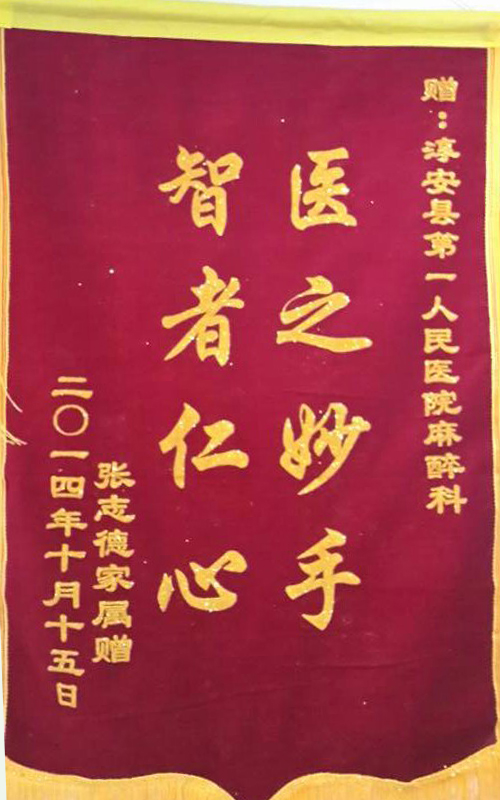 赠：淳安县第一人民医院麻醉科
医之妙手
智者仁心
张志德家属赠
二〇一四年十月十五日